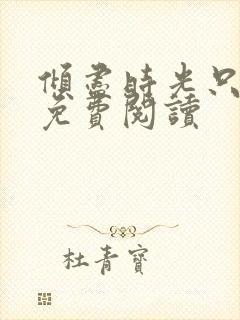 傾盡時光只
免費閱讀
杜青寶